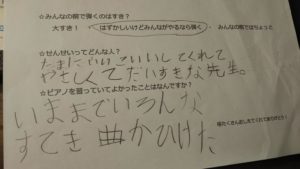 ☆みんなの前で弾くのはすき？
大すき！ はずかしいけどみんながやるなら弾く ・みんなの前ではちょっと
☆せんせいってどんな人？
たまにいいこいいしてくれて
やさしくてだいすきな先生。
☆ピアノを習っていてよかったことはなんですか？
いままでいろんな
すてき曲かひけた